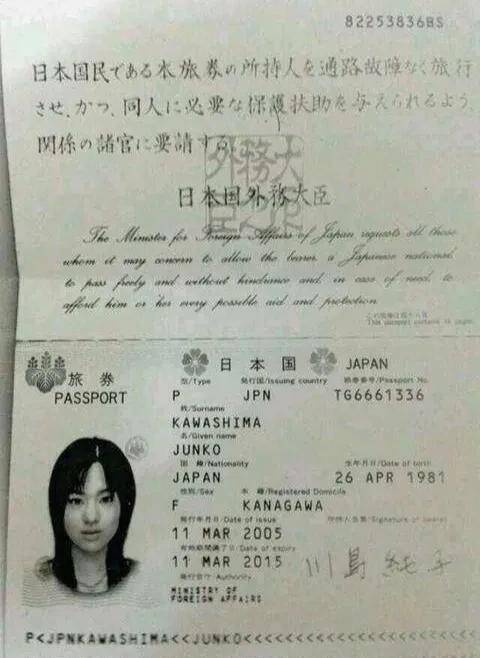 82253836BS
日本国民である本旅券の所持人を通路故障なく旅行
させ、かつ、同人に必要な保護扶助を与えられるよう、
関係の諸官に要請する。
日本国外務大臣
The Minister for Foreign Affairs of Japan requests all those
whom it may concern to allow the bearer, a Japanese national,
to pass freely and without hindrance and, in case of need, to
afford him or her every possible aid and protection.
This passport contains pages
日本国 JAPAN
旅券
PASSPORT
型/Type 発行国/Issuing country 旅券番号/Passport No.
P JPN TG6661336
姓/Surname
KAWASHIMA
名/Given name
JUNKO
国籍/Nationality 生年月日/Date of birth
JAPAN 26 APR 1981
性別/Sex 本籍/Registered Domicile
F KANAGAWA
発行年月日/Date of issue 所持人自署/Signature of bearer
11 MAR 2005
有効期間満了日/Date of expiry
11 MAR 2015 川島純子
発行官庁/Authority
MINISTRY OF
FOREIGN AFFAIRS
P<JPNKAWASHIMA<<JUNKO<<<<<<<<<<<<<<<<<<